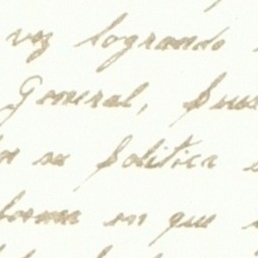 voz logrando
General,
su politica
forma en que